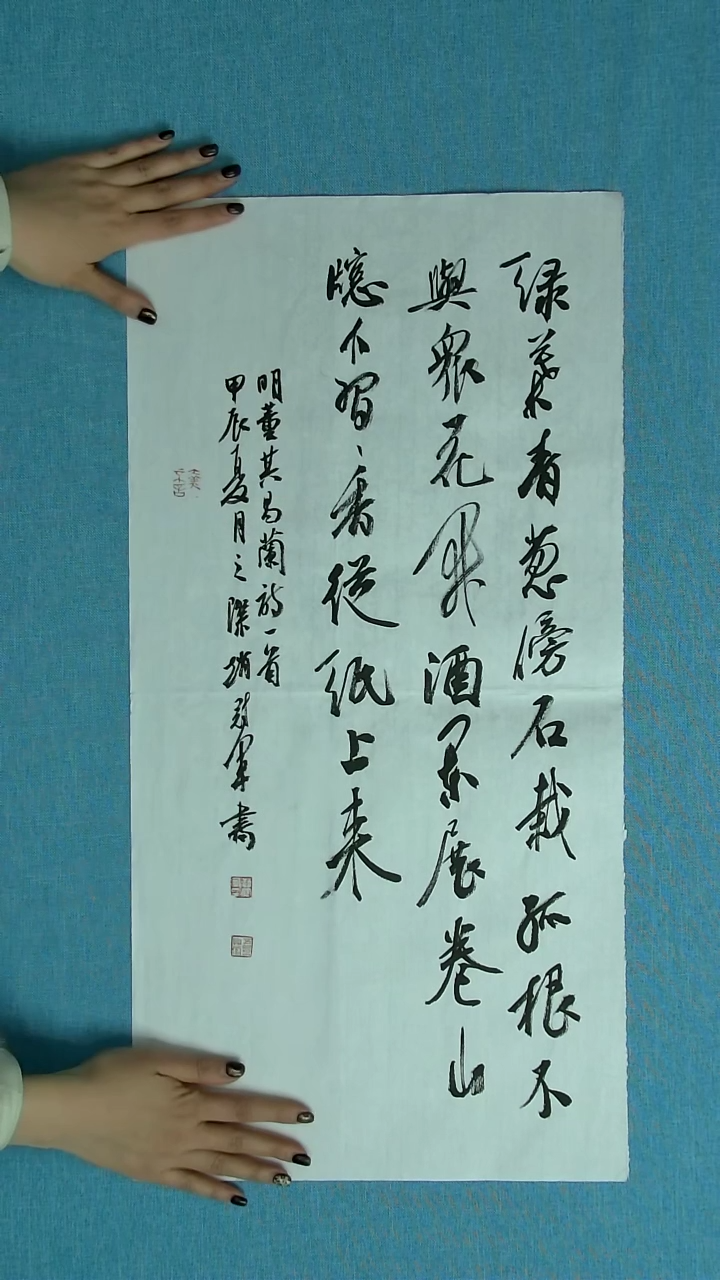 緑葉青葱傍石栽孤根不
與眾花開酒闌展卷山
牕下習〻香從紙上来
明董其昌蘭詩一首
甲辰夏月之際趙冠軍書